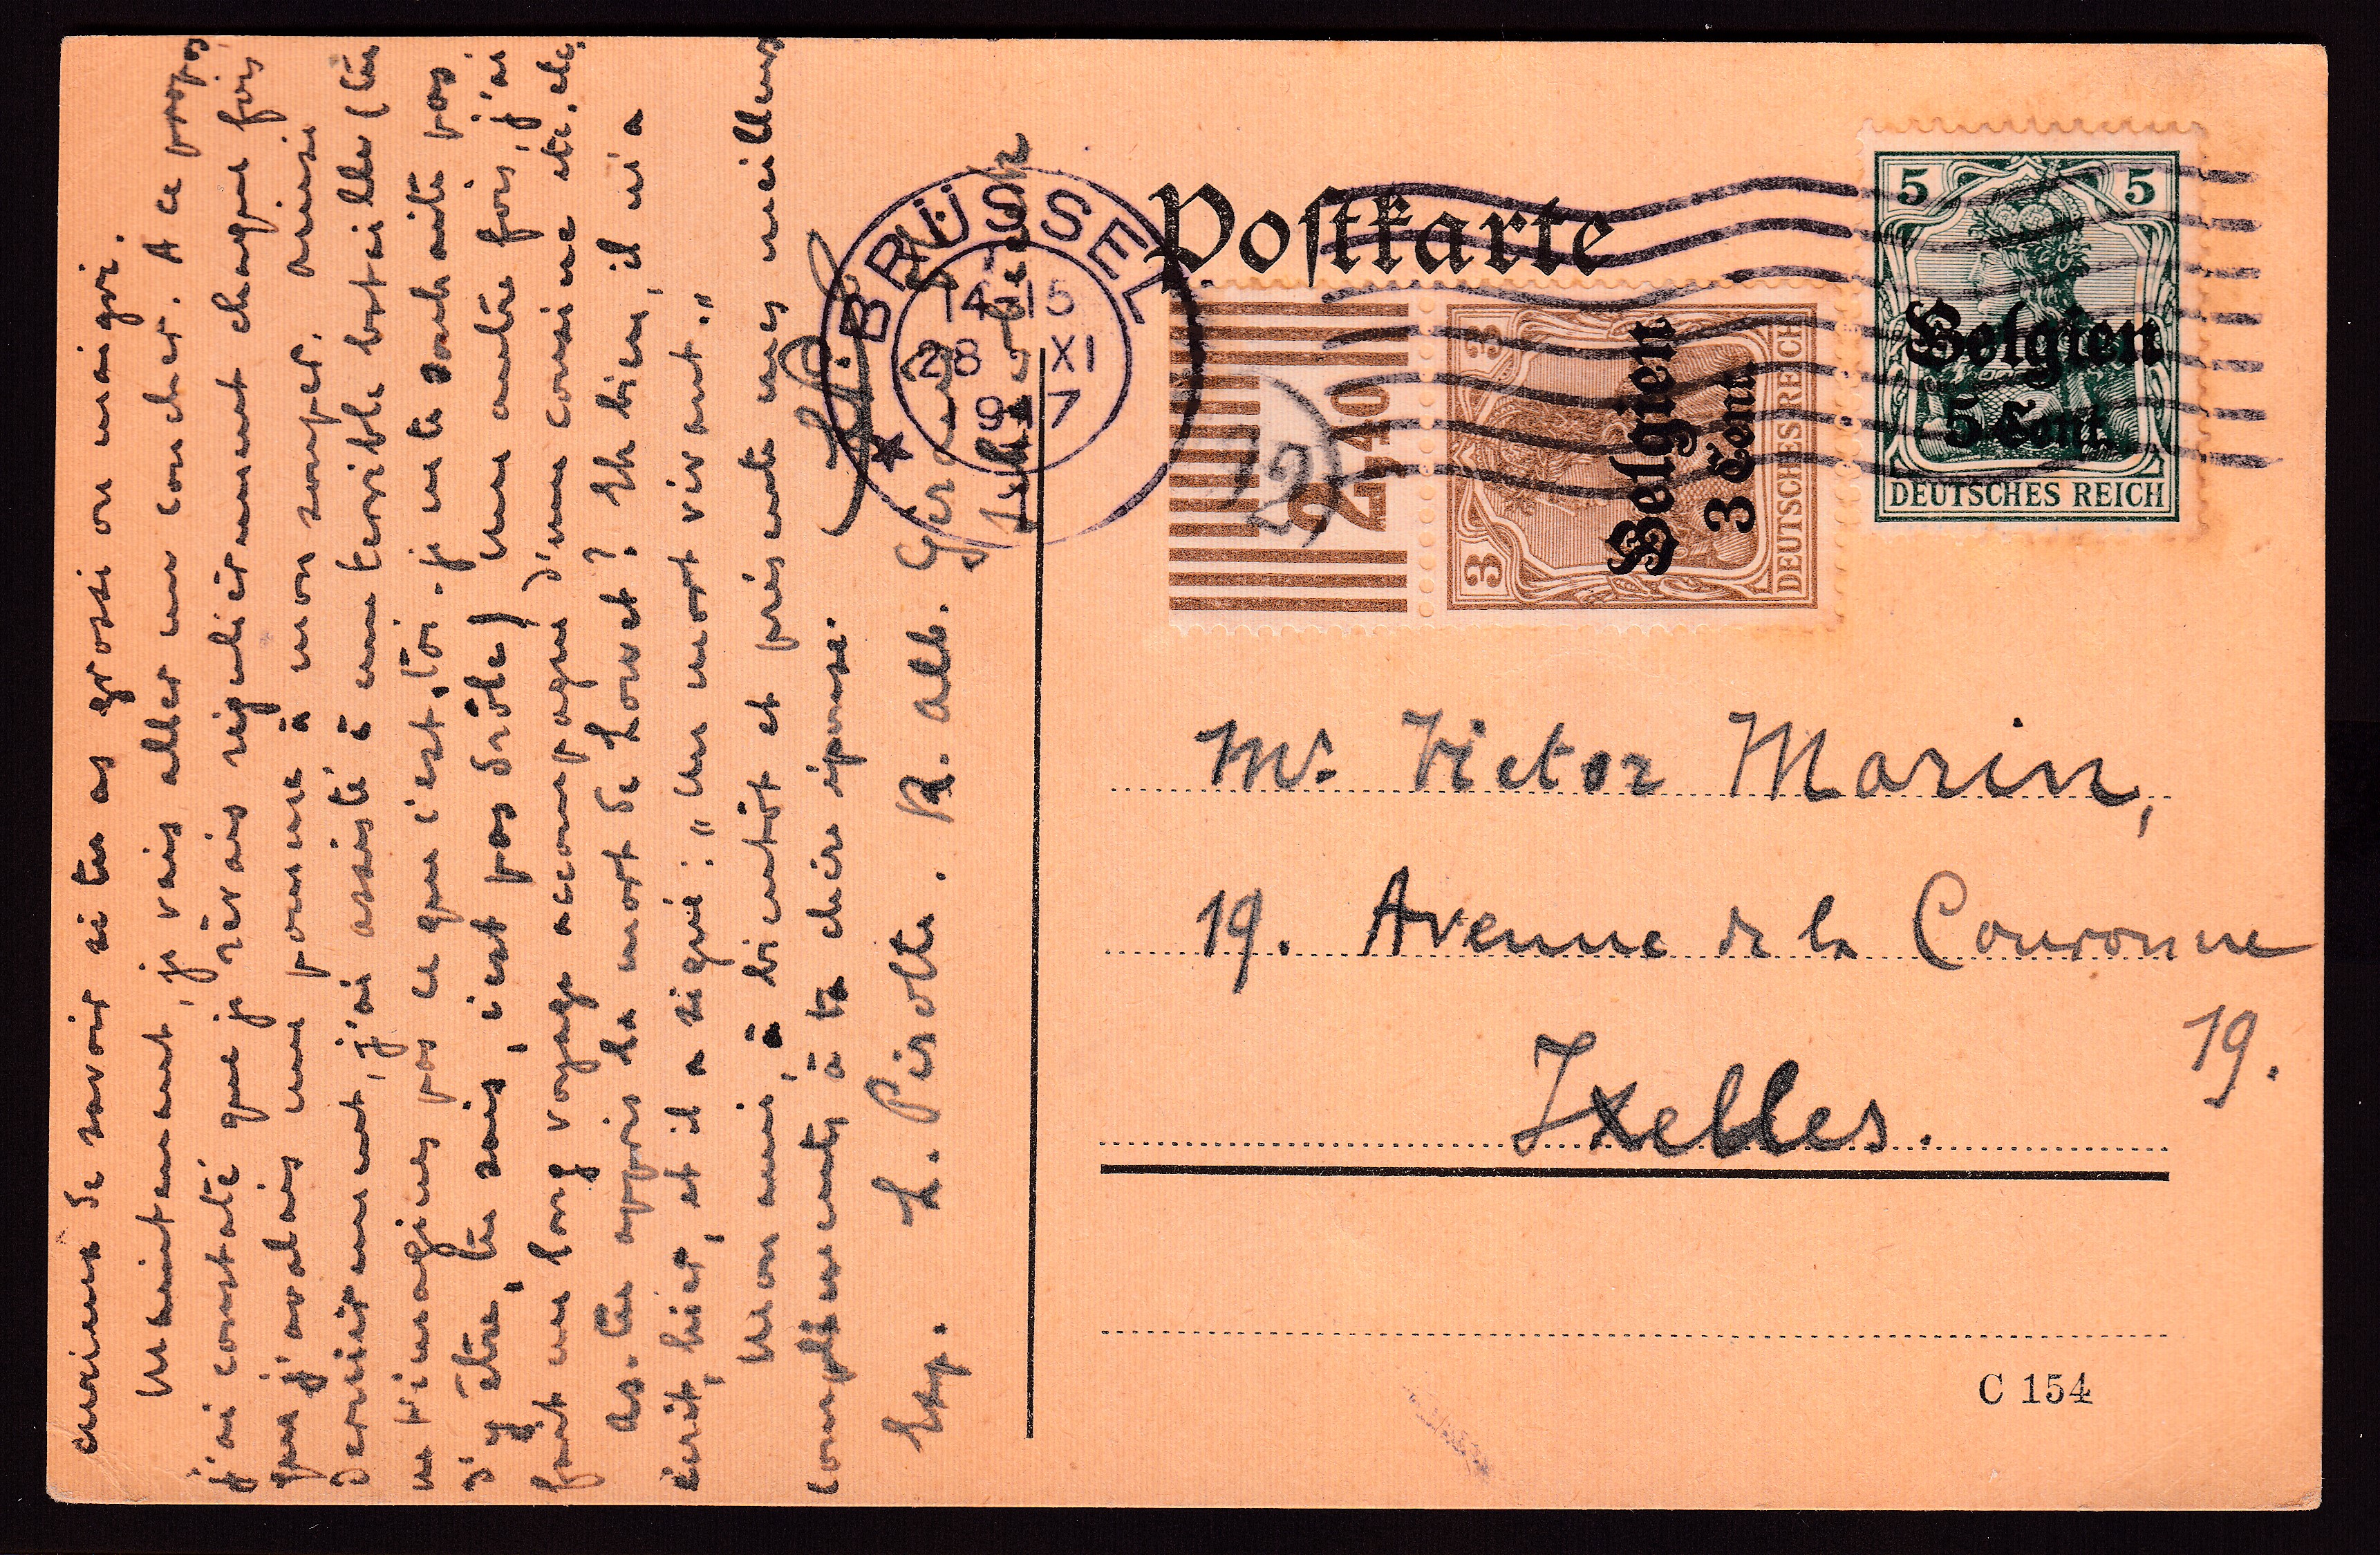 curieux de savoir si tu as grossi ou maigri.
Maintenant, je vais aller me coucher. A ce propos
j'ai constaté que je rêvais régulièrement chaque fois
que j'avalais une pomme à mon souper. Ainsi
dernièrement, j'ai assisté à une terrible bataille (tu
ne t'imagines pas ce que c'est, toi. je ne te souhaite pas
d'y être, tu sais, c'est pas drôle) une autre fois, j'ai
fait un long voyage accompagné d'une cousine etc. etc.
As-tu appris la mort de Louet? Eh bien, il m'a
écrit, hier, et il a signé : "Un mort vivant."
Mon ami, à bientôt et présente mes meilleurs
compliments à ta chère épouse.
Exp. L. Pirotte. R. Alb.
Postkarte
BRÜSSEL
14-15
28 XI
917
12
2,40
3 3
Belgien
3 Cent.
DEUTSCHES REICH
5 5
Belgien
5 Cent.
DEUTSCHES REICH
Mr. Victor Marin,
19. Avenue de la Couronne
19.
Ixelles.
C 154